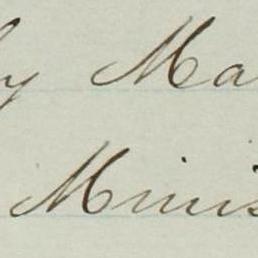 y Ma
Minis